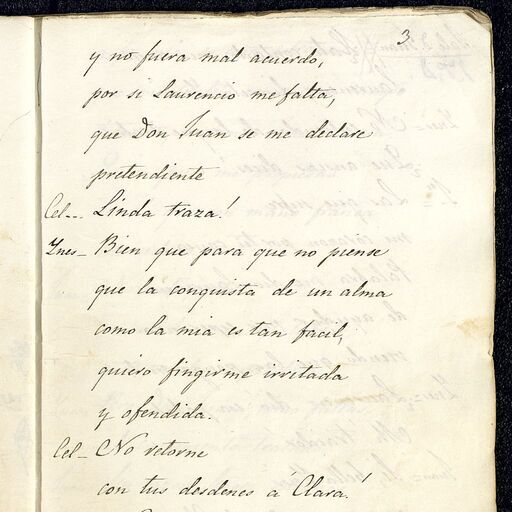 3
y no fuera mal acuerdo,
por si Laurencio me falta,
que Don Juan se me declare
pretendiente
Cel-- Linda traza!
Ynes- Bien que para que no piense
que la conquista de un alma
como la mia es tan facil,
quiero fingirme irritada
y ofendida.
Cel- No retorne
con tus desdenes á Clara!